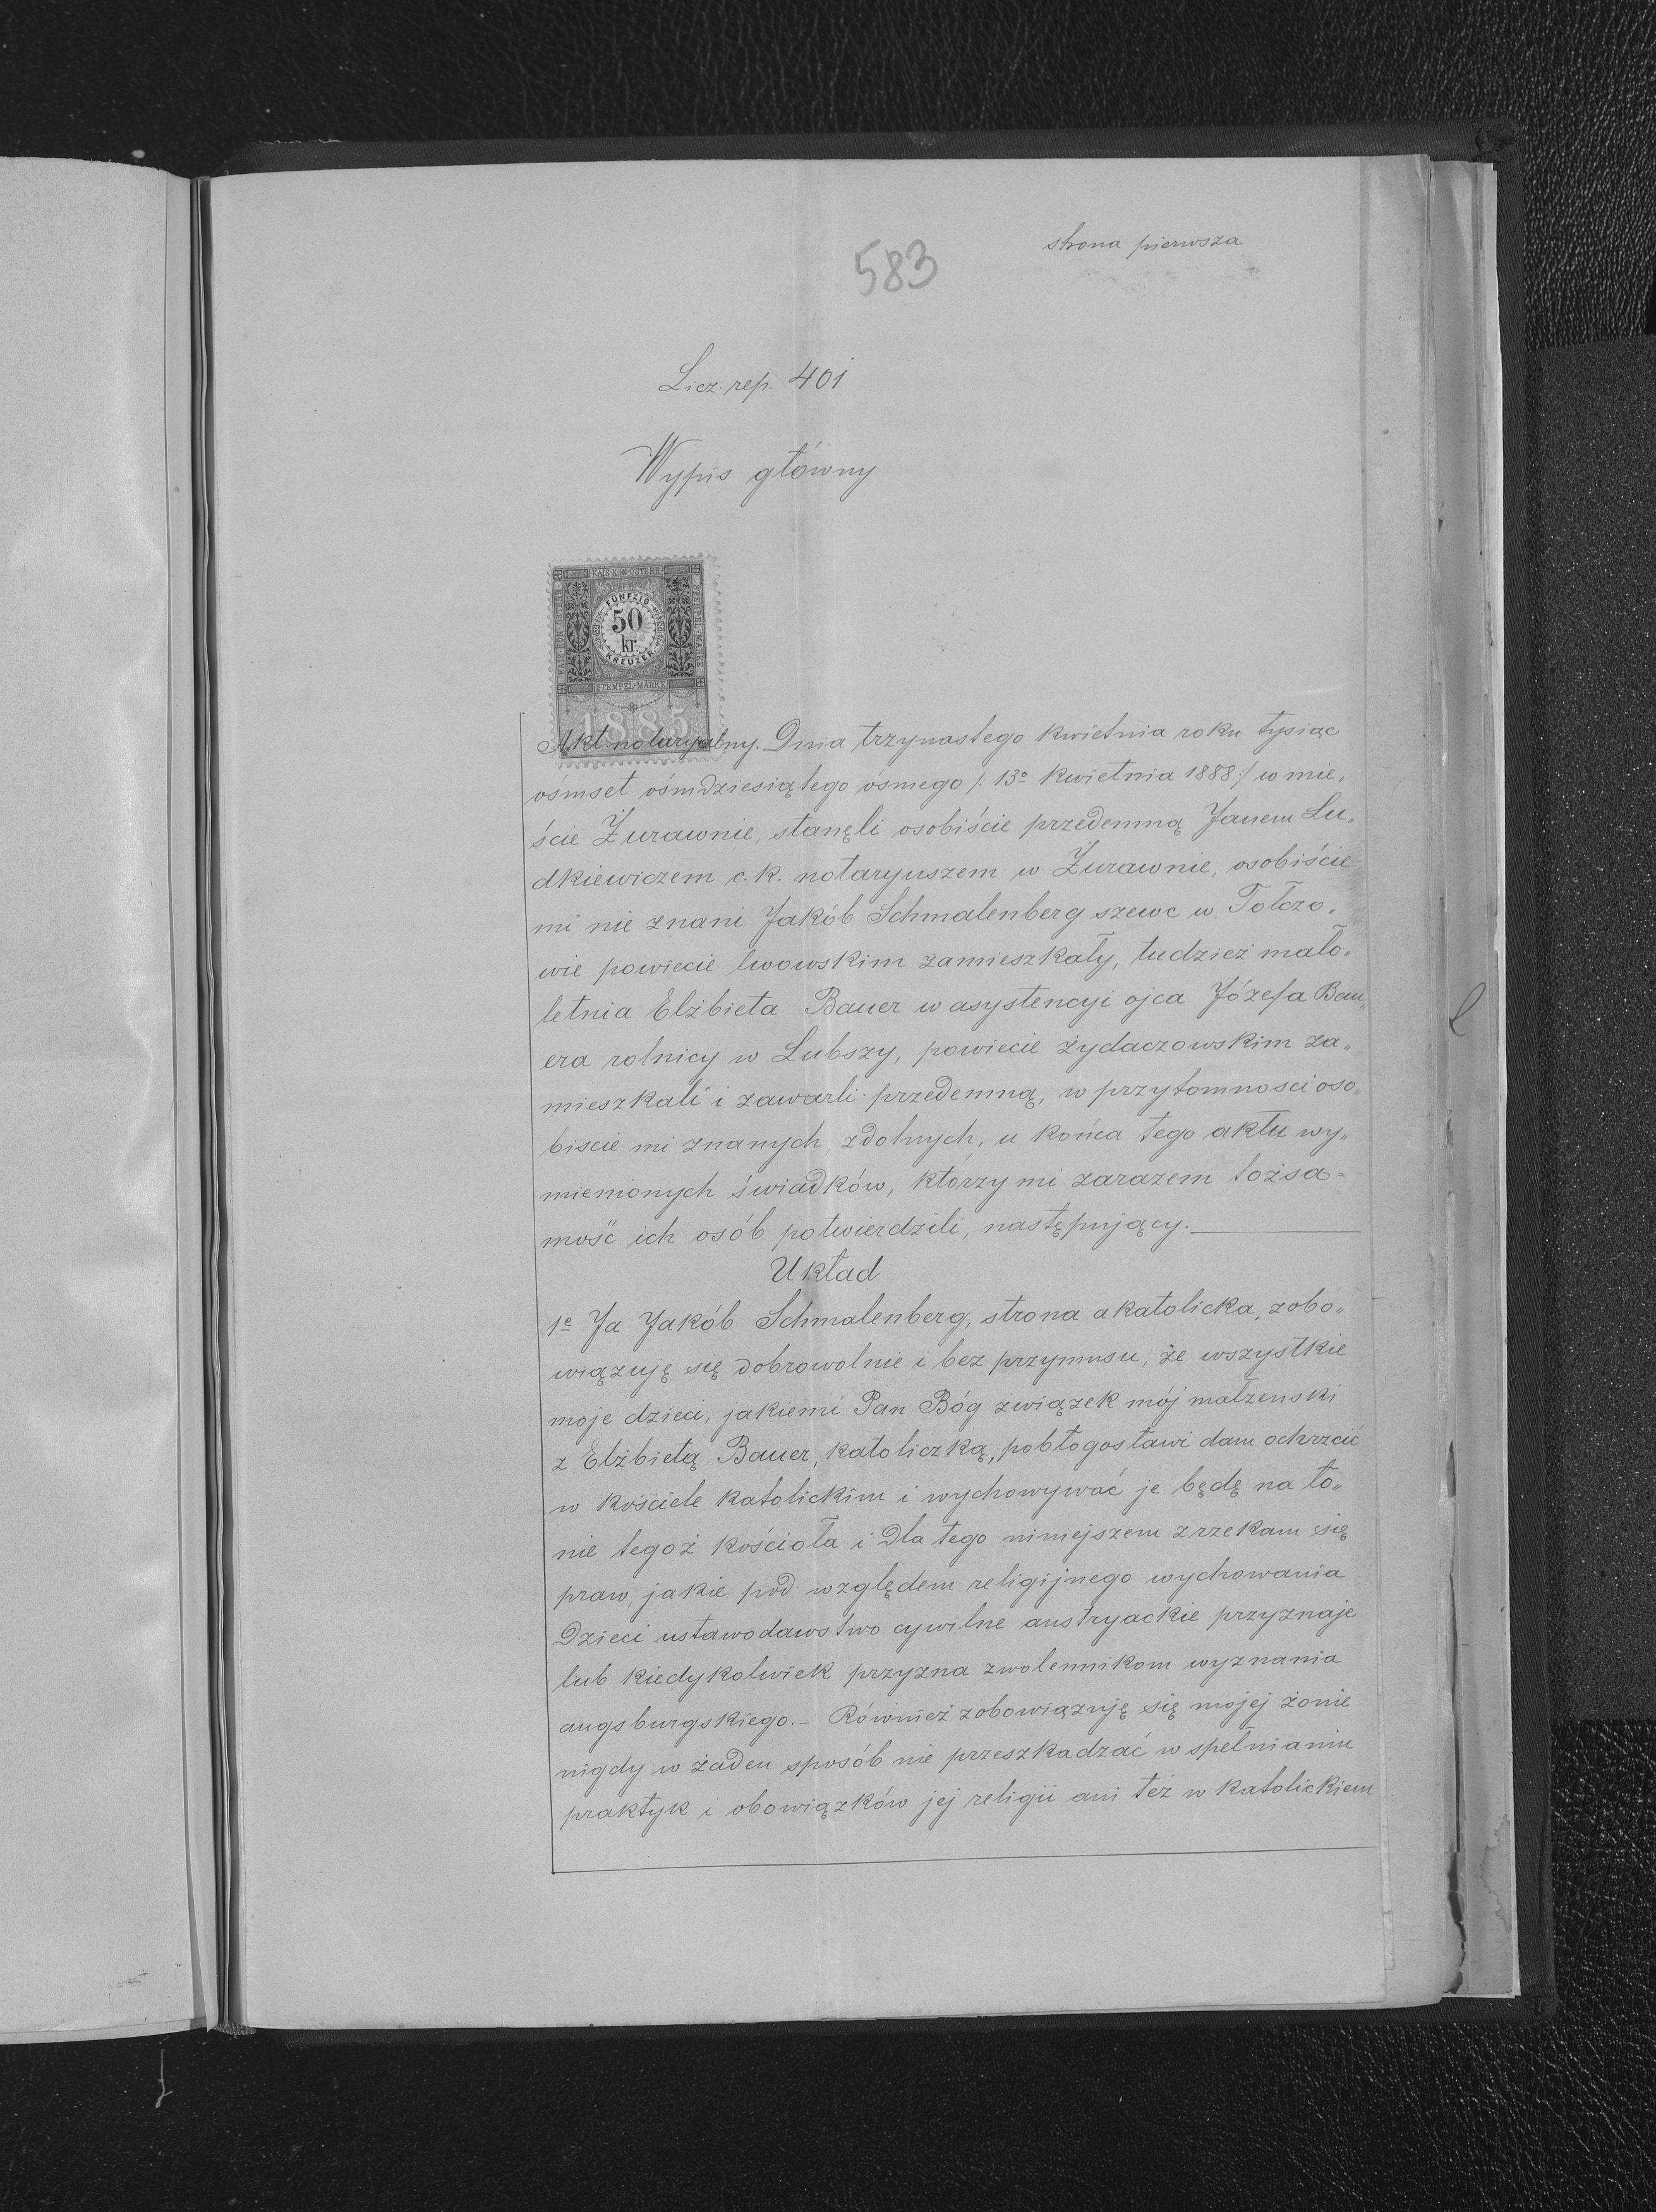 strona pierwsza
583
Licz. rep. 401
Wypis główny
KAIS. KÖN. ÖSTERR.
STEMPEL-MARKE
FÜNFZIG
50
kr.
KREUZER
STEMPEL-MARKE
1885
Akt notaryalny. Dnia trzynastego kwietnia roku tysiąc
ośmset ośmdziesiątego ósmego /: 13º kwietnia 1888 :/ w mie„
ście Żurawnie, stanęli osobiście przedemną Janem Lu„
dkiewiczem c. k. notaryuszem w Żurawnie, osobiście
mi nie znani Jakób Schmalenberg szewc w Tołczo„
wie powiecie lwowskim zamieszkały, tudzież mało„
letnia Elżbieta Bauer w asystencyi ojca Józefa Bau„
era rolnicy w Lubszy, powiecie żydaczowskim za„
mieszkali i zawarli przedemną, w przytomnosci oso„
biscie mi znanych, zdolnych, u końca tego aktu wy„
mienionych świadków, którzy mi zarazem tożsa=
mość ich osób potwierdzili, następujący.
Układ
1º Ja Jakób Schmalenberg, strona akatolicka, zobo„
wiązuję się dobrowolnie i bez przymusu, że wszystkie
moje dzieci, jakiemi Pan Bóg związek mój małżenski
z Elżbietą Bauer, katoliczką, pobłogosławi dam ochrzcić
w kościele katolickim i wychowywać je będę na ło„
nie tegoż kościoła i dla tego niniejszem zrzekam się
praw, jakie pod względem religijnego wychowania
dzieci ustawodawstwo cywilne austryackie przyznaje
lub kiedykolwiek przyzna zwolennikom wyznania
augsburgskiego. – Również zobowiązuję się mojej żonie
nigdy w żaden sposób nie przeszkadzać w spełnianiu
praktyk i obowiązków jej religii ani też w katolickiem